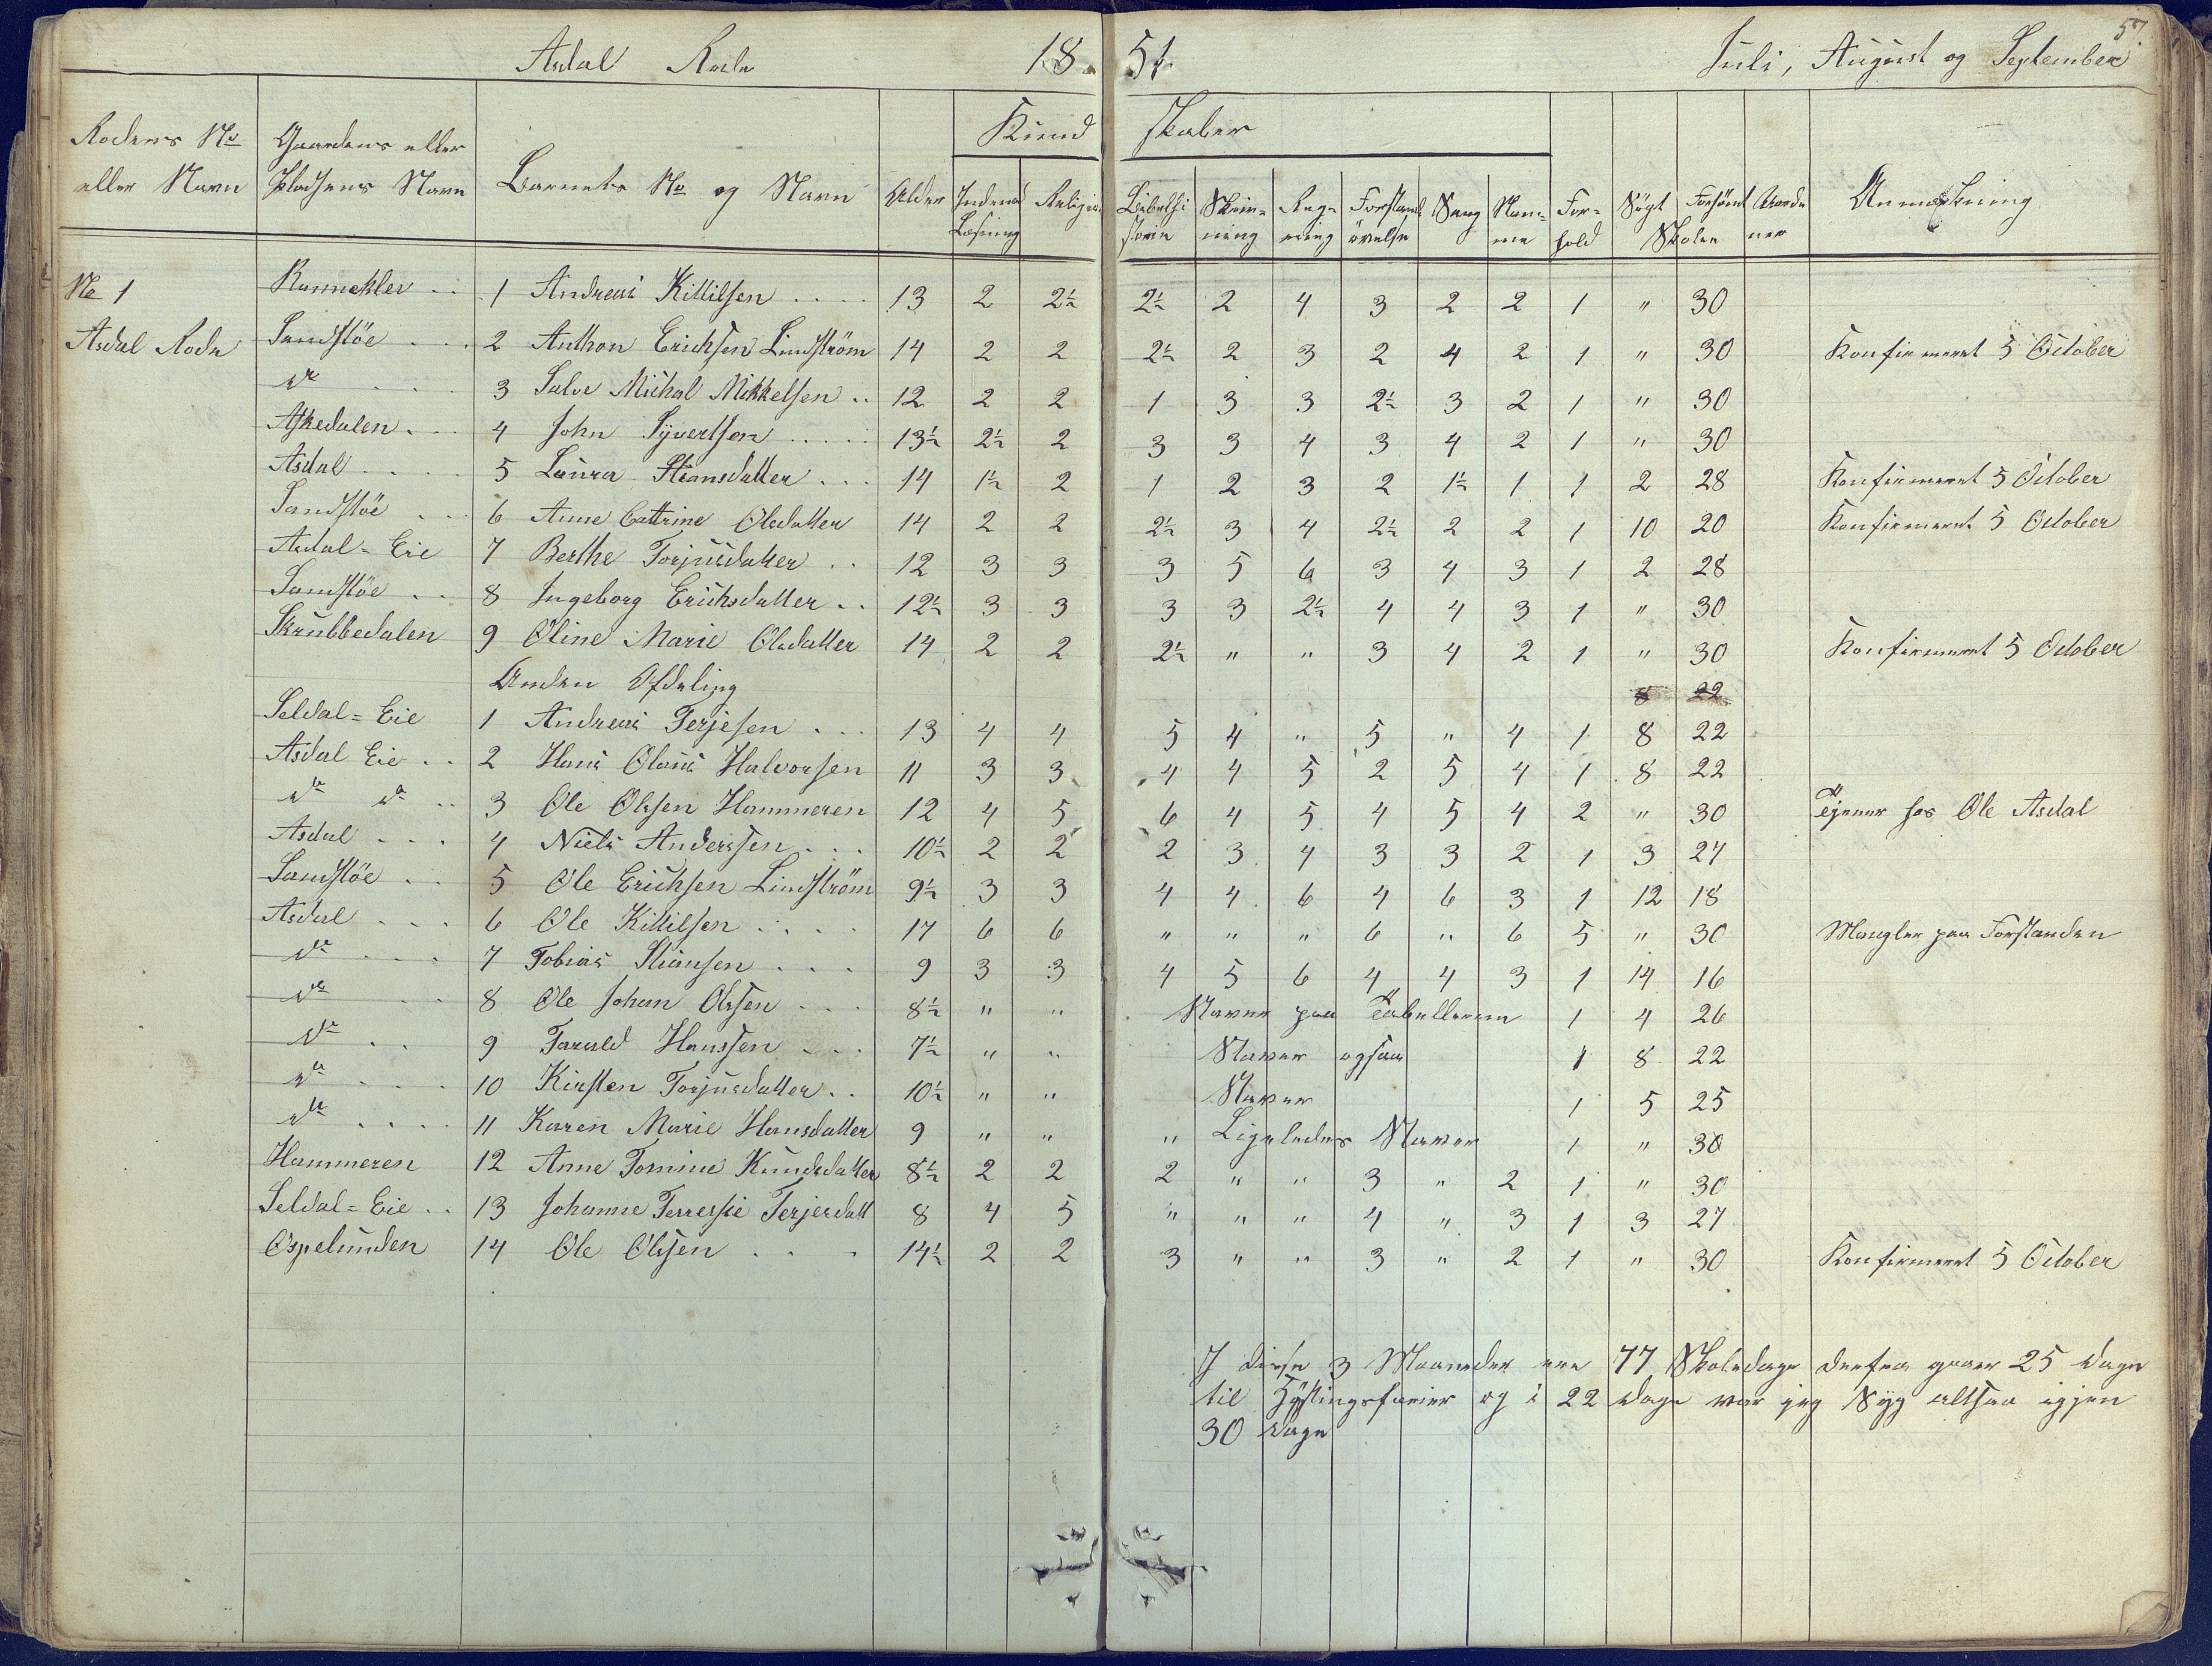 57
Asdal Rode 18 51. Juli, August og September
Kund skaber
Rodens No eller Navn | Gaardens eller Pladsens Navn | Barnets No og Navn | Alder | Indenad Læsning | Religion | Bibelhistorie | Skrivning | Regning | Forstandsövelse | Sang | Nemme | Forhold | Sögt Skolen | Forsömt Skolen | Anmærkning
No 1 1 Andreas Kittilsen .... 13 2 2½ 2½ 2 4 3 2 2 1 " 30
Asdal Rode Sandstöe ... 2 Anthon Erichsen Lindström 14 2 2 2½ 2 3 2 4 2 1 " 30 Konfirmeret 5 October
do .... 3 Salve Michal Mikkelsen .. 12 2 2 1 3 3 2½ 3 2 1 " 30
Askedalen ... 4 John Syvertsen ..... 13½ 2½ 2 3 3 4 3 4 2 1 " 30
Asdal .... 5 Laura Stiansdatter ... 14 1½ 2 1 2 3 2 1½ 1 1 2 28 Konfirmeret 5 October
Sandstöe .. 6 Anne Cattrine Olsdatter 14 2 2 2½ 3 4 2½ 2 2 1 10 20 Konfirmeret 5 October
Asdal=Eie 7 Berthe Torjusdatter .. 12 3 3 3 5 6 3 4 3 1 2 28
Sandstöe .. 8 Ingeborg Erichsdatter .. 12½ 3 3 3 3 2½ 4 4 3 1 " 30
Skrubbedalen 9 Oline Marie Olsdatter 14 2 2 2½ " " 3 4 2 1 " 30 Konfirmeret 5 October
Anden Afdeling 8 22
Seldal=Eie 1 Andreas Terjesen ... 13 4 4 5 4 " 5 " 4 1 8 22
Asdal Eie .. 2 Hans Olaus Halvorsen 11 3 3 4 4 5 2 5 4 1 8 22
do do .. 3 Ole Olssen Hammeren 12 4 5 6 4 5 4 5 4 2 " 30 Tjener hos Ole Asdal
Asdal ... 4 Niels Anderssen ... 10½ 2 2 2 3 4 3 3 2 1 3 27
Sandstöe .. 5 Ole Erichsen Lindström 9½ 3 3 4 4 6 4 6 3 1 12 18
Asdal ... 6 Ole Kittilsen .... 17 6 6 " " " 6 " 6 5 " 30 Mangler paa Forstanden
do ... 7 Tobias Stiansen ... 9 3 3 4 5 6 4 4 3 1 14 16
do .. 8 Ole Johan Olssen ... 8½ " " Staver paa Tabellerne 1 4 26
do .. 9 Tarald Hanssen ... 7½ " " Staver ogsaa 1 8 22
do .... 10 Kirsten Torjusdatter .. 10½ " " Staver 1 5 25
do .... 11 Karen Marie Hansdatter 9 " " " Ligeledes Staver 1 " 30
Hammeren 12 Anne Tomine Knudsdatter 8½ 2 2 2 " " 3 " 2 1 " 30
Seldal=Eie .. 13 Johanne Terressie Terjesdatt 8 4 5 " " " 4 " 3 1 3 27
Ospelunden 14 Ole Olssen ... 14½ 2 2 3 " " 3 " 2 1 " 30 Konfirmeret 5 October
I disse 3 Maaneder ere 77 Skoledage derfra gaaer 25 dage
til Höstingsferier og i 22 dage var jeg Syg altsaa igjen
30 dage